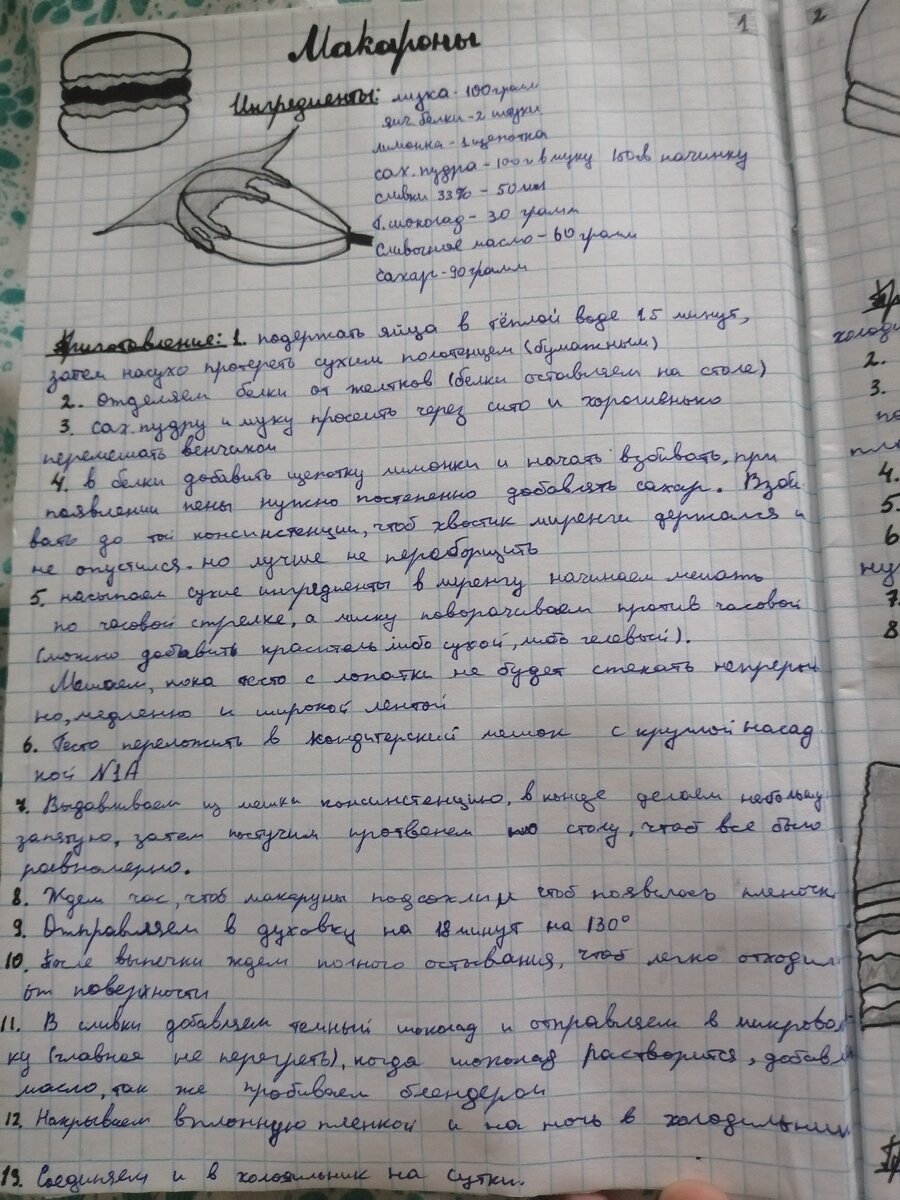 1
Макароны
Ингредиенты: мука - 100 грамм
яич. белки - 2 штуки
лимонка - 1 щепотка
сах. пудра - 100 г в муку 150 в начинку
сливки 33% - 50 мл
т. шоколад - 30 грамм
сливочное масло - 60 грамм
сахар - 90 грамм
Приготовление: 1. подержать яйца в тёплой воде 15 минут,
затем насухо протереть сухим полотенцем (бумажным)
2. Отделяем белки от желтков (белки оставляем на столе)
3. сах. пудру и муку просеить через сито и хорошенько
перемешать венчиком
4. в белки добавить щепотку лимонки и начать взбивать, при
появлении пены нужно постепенно добавлять сахар. Взби
вать до той консинстенции, чтоб хвостик миренги держался и
не опустился. но лучше не переборщить
5. насыпаем сухие ингредиенты в миренгу начинаем мешать
по часовой стрелке, а миску поворачиваем против часовой
(можно добавить краситель либо сухой, либо гелевый).
Мешаем, пока тесто с лопатки не будет стекать непрерыв
но, медленно и широкой лентой
6. Тесто переложить в кондитерский мешок с круглой насад
кой N1A
7. Выдавливаем из мешка консинстенцию, в конце делаем небольшую
запятую, затем постучим протвенем по столу, чтоб все было
равномерно.
8. Ждем час, чтоб макаруны подсохли и чтоб появилась пленочк
9. Отправляем в духовку на 18 минут на 130°
10. После выпечки ждем полного остывания, чтоб легко отходил
от поверхности
11. В сливки добавляем темный шоколад и отправляем в микровол
ку (главное не перегреть), когда шоколад растворится, добавл
масло, так же пробиваем блендером
12. Накрываем вплотную пленкой и на ночь в холодильник
13. Соединяем и в холодильник на сутки.
2
холоди
2.
3.
по
4.
5.
6
ну
7.
8